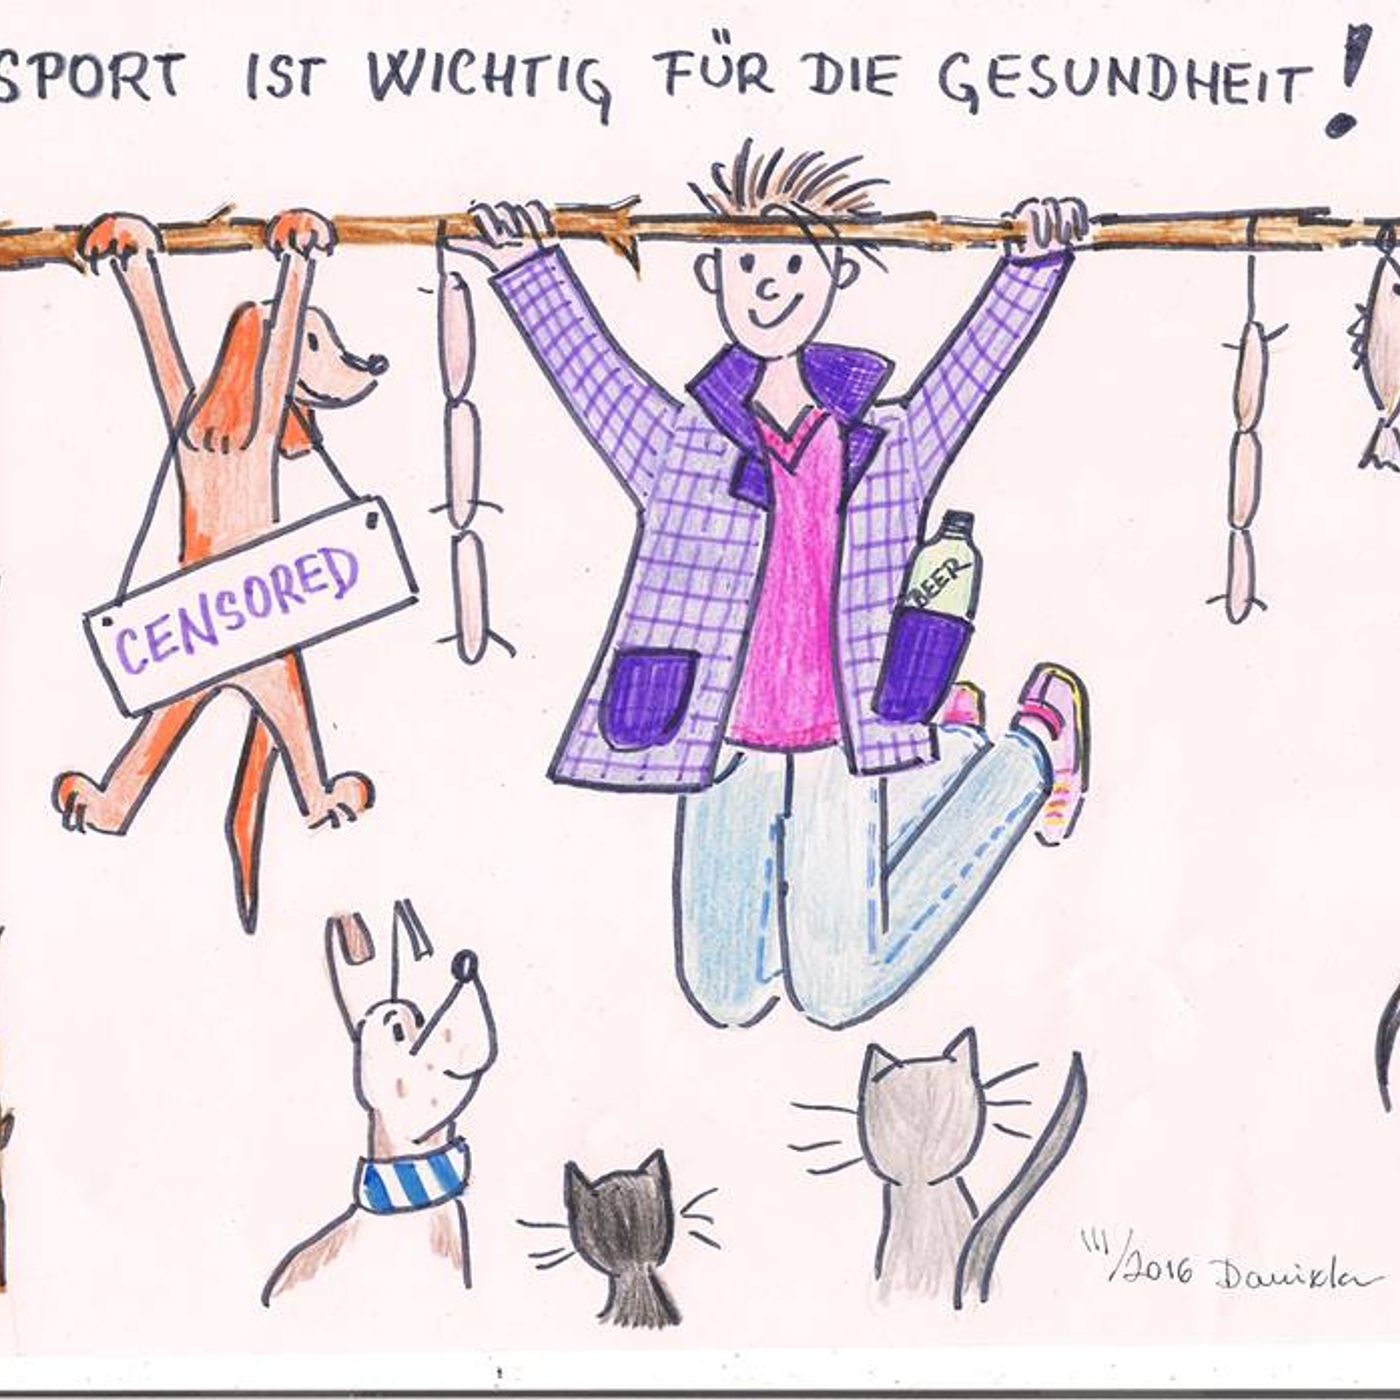 SPORT IST WICHTIG FÜR DIE GESUNDHEIT!
BEER
CENSORED
III/2016